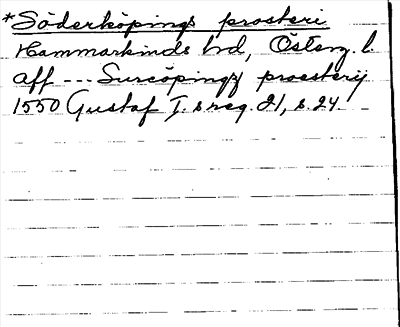 *Söderköpings prosteri
Hammarkinds hd, Österg. l.
aff --- Surcöpingx proesterij
1550 Gustaf I. s reg. 21, s. 24.